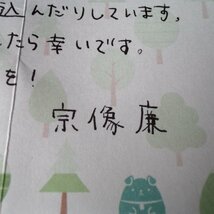 込んだりしています。
たら幸いです。
を!
宗像 廉